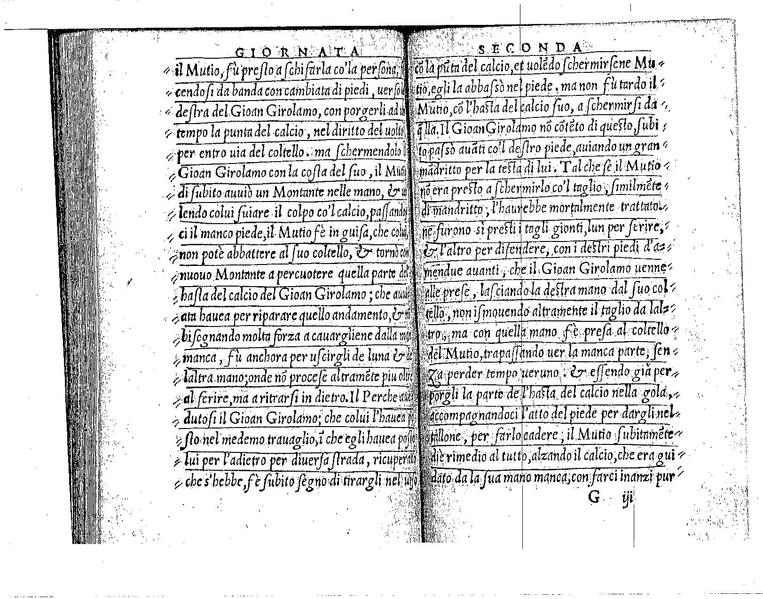 GIORNATA
il Mutio, fù presto a schifarla co'la persona, 
cendosi da banda con cambiata di piedi, ver so
destra del Gioan Girolamo, con porgerli ad
tempo la punta del calcio, nel diritto del uolto
per entro uia del coltello. ma schermendolo
Gioan Girolamo con la costa del suo, il Muti
di subito auuiò un Montante nelle mano, &
lendo colui suiare il colpo co'l calcio, passando
ci il manco piede, il Mutio fè in guisa, che colui
non potè abbattere al suo coltello, & tornò
nuouo Montante a percuotere quella parte de
hasta del calcio del Gioan Girolamo; che
ata hauea per riparare quello andamento, &
bisegnando molta forza a cauargliene dalla
manca, fù anchora per uscirgli de luna &
laltra mano; onde nō procese altramēte piu oltre
al ferire, ma a ritrarsi in dietro. Il Perche
dutosi il Gioan Girolamo; che colui l'hauea
sto nel medemo trauaglio, ī che egli hauea posto
lui per l'adietro per diuersa strada, ricuperato
che s'hebbe, fè subito segno di tirargli nel uiso
SECONDA
cō la pūta del calcio, et uolēdo schermirsene Mu
tio, egli la abbassò nel piede. ma non fù tardo il
Mutio, cō l'hasta del calcio suo, a schermirsi da
q̄lla. Il Gioan Girolamo nō cōtēto di questo, subi
to passò auāti co'l destro piede, auiando un gran
madritto per la testa di lui. Tal che se il Mutio
nō era presto a schermirlo co'l taglio, similmēte
di mandritto, l'haurebbe mortalmente trattato.
ne furono si presti i tagli gionti, lun per ferire,
& l'altro per difendere, con i destri piedi d'a=
mendue auanti, che il Gioan Girolamo uenne
alle prese, lasciando la destra mano dal suo col
tello, non ismouendo altramente il taglio da lal=
tro, ma con quella mano fè presa al coltello
del Mutio, trapassando uer la manca parte, sen
za perder tempo ueruno. & essendo già per
porgli la parte de l'hasta del calcio nella gola,
accompagnandoci l'atto del piede per dargli nel
tallone, per farlo cadere; il Mutio subitamēte
diè rimedio al tutto, alzando il calcio, che era gui
dato da la sua mano manca, con farci inanzi pur
G iij